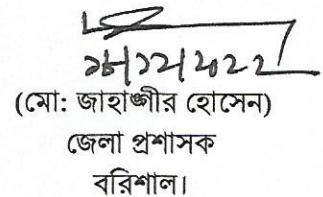 ২৮/১২/২০২২
(মো: জাহাঙ্গীর হোসেন)
জেলা প্রশাসক
বরিশাল।